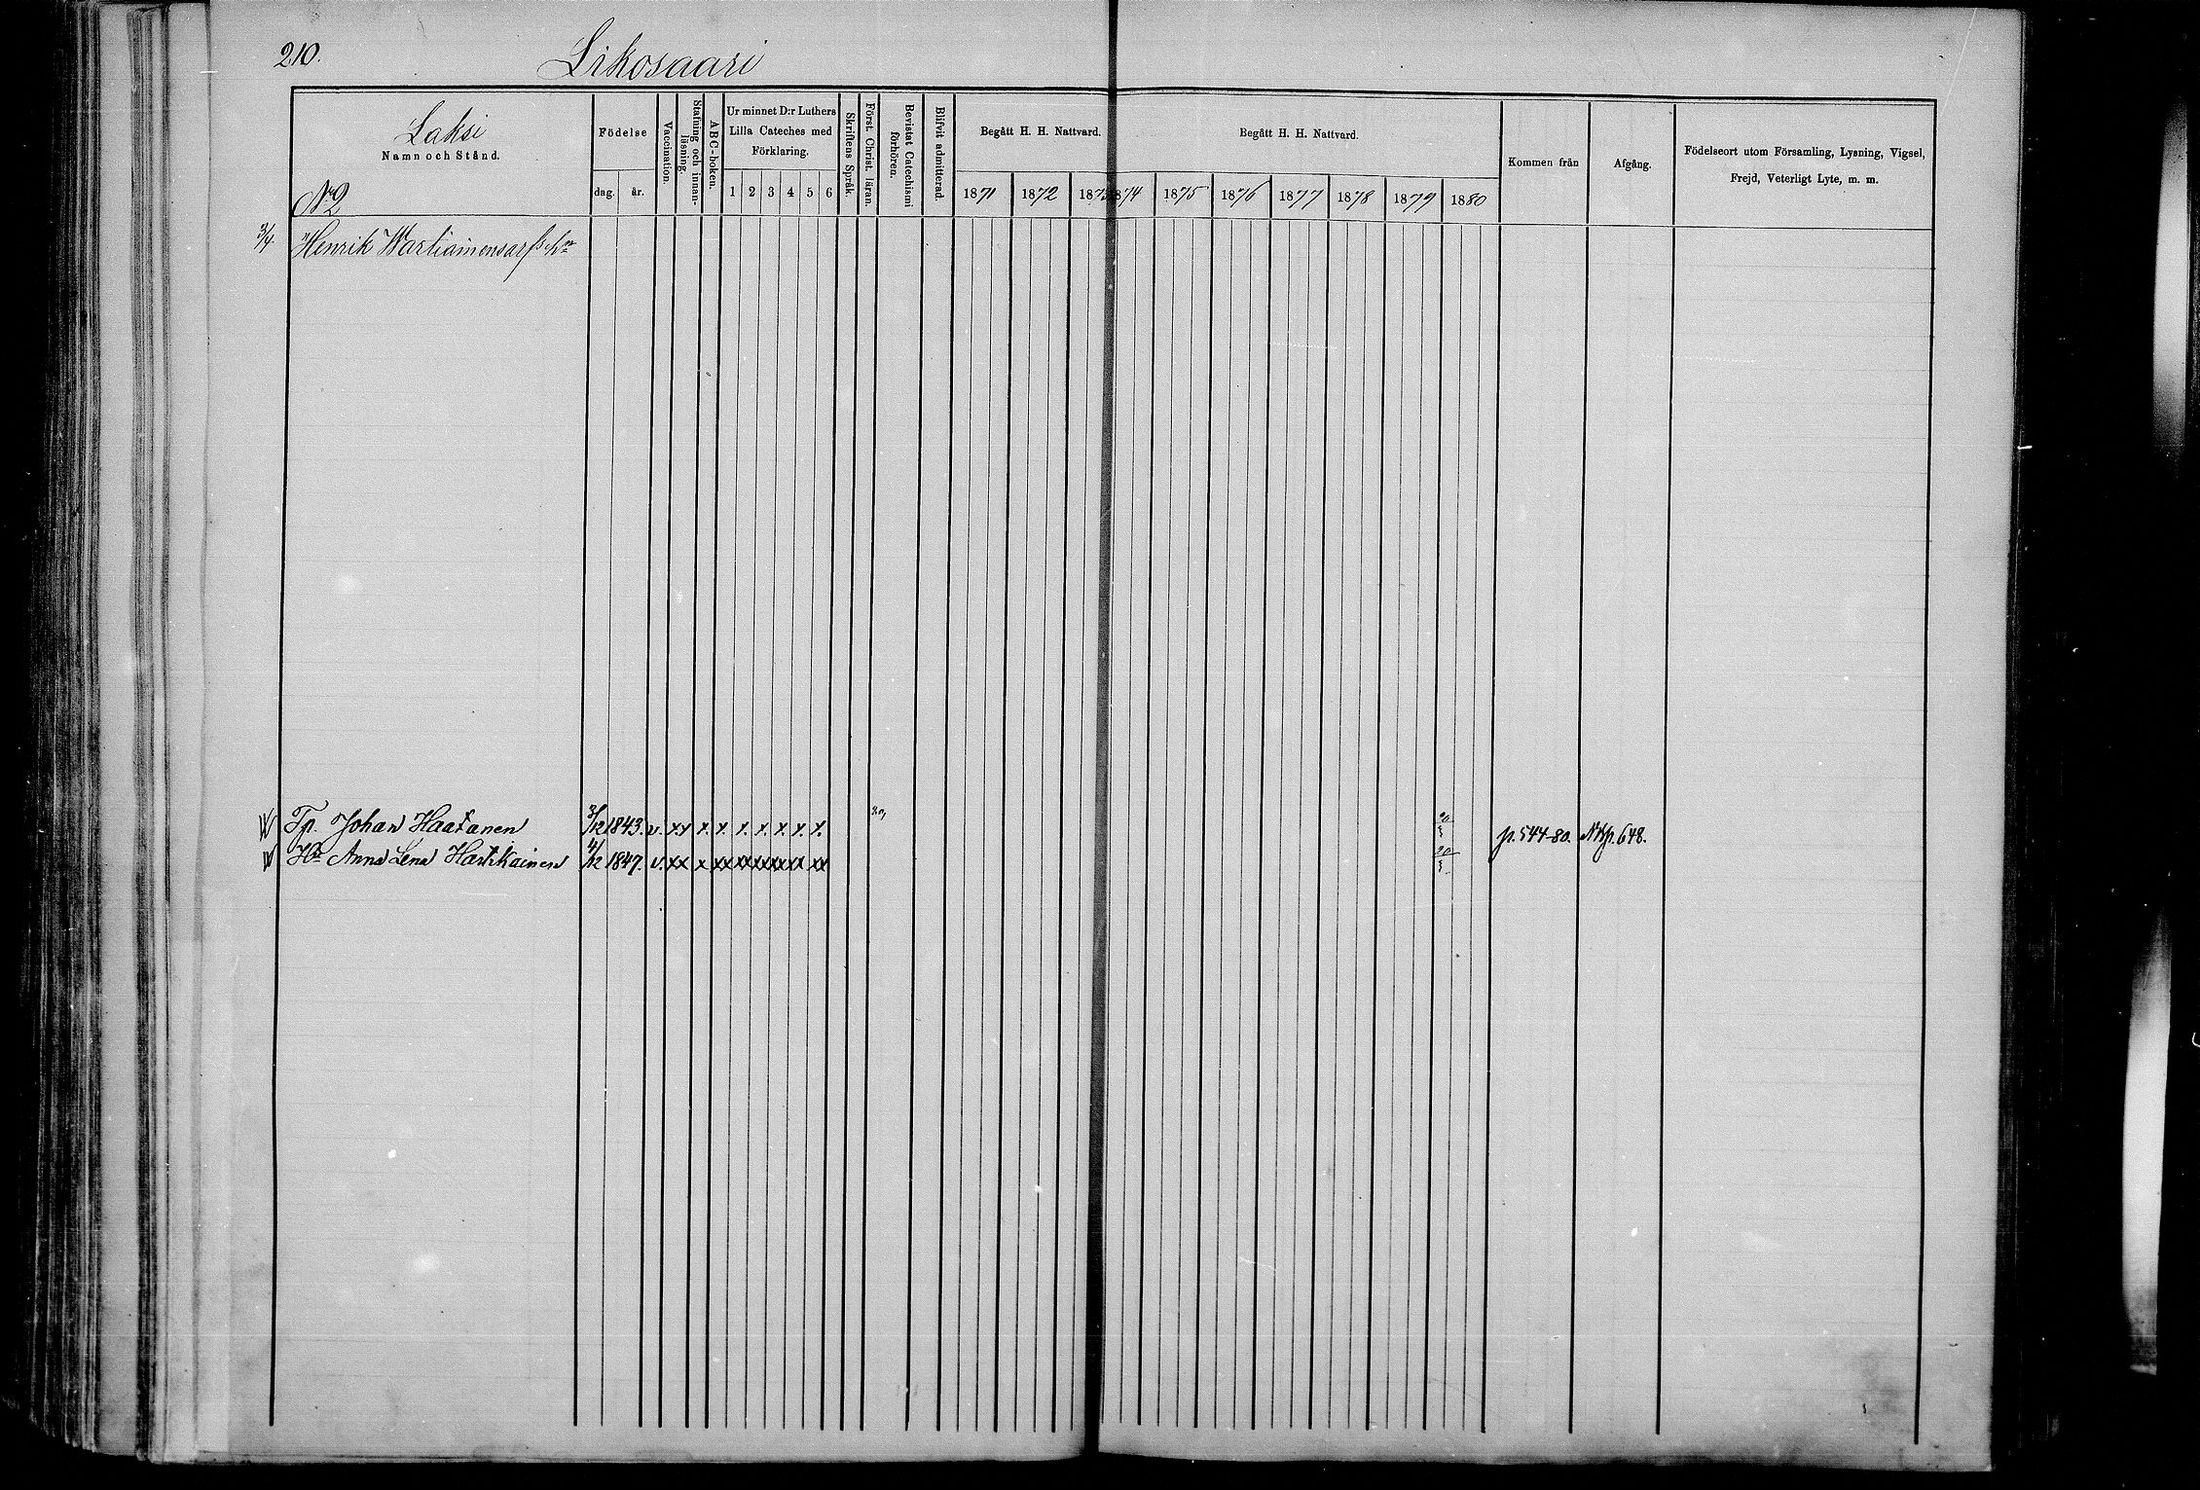 210.
Likosaari
Laksi
Namn och Stånd.
No 2
Födelse
dag. år.
Vaccination.
Stafning och innan-läsning.
ABC-boken.
Ur minnet D:r Luthers
Lilla Cateches med
Förklaring.
1 2 3 4 5 6
Skriftens Språk.
Först. Christ. läran.
Bevistat Catechismi förhören.
Blifvit admitterad.
Begått H. H. Nattvard.
1871 1872 1873
Begått H. H. Nattvard.
1874 1875 1876 1877 1878 1879 1880
Kommen från
Afgång.
Födelseort utom Församling, Lysning, Vigsel,
Frejd, Veterligt Lyte, m. m.
3/4. Henrik Wartiainens
Tp. Johan Haatanen 3/12 1843. v. x x x. x. x. x. x. x. x. 20/3 p. 544-80. NKp. 648.
Ha Anna Lena Hartikainen 4/12 1847. v. xx x xx xx xx xx xx xx 20/3